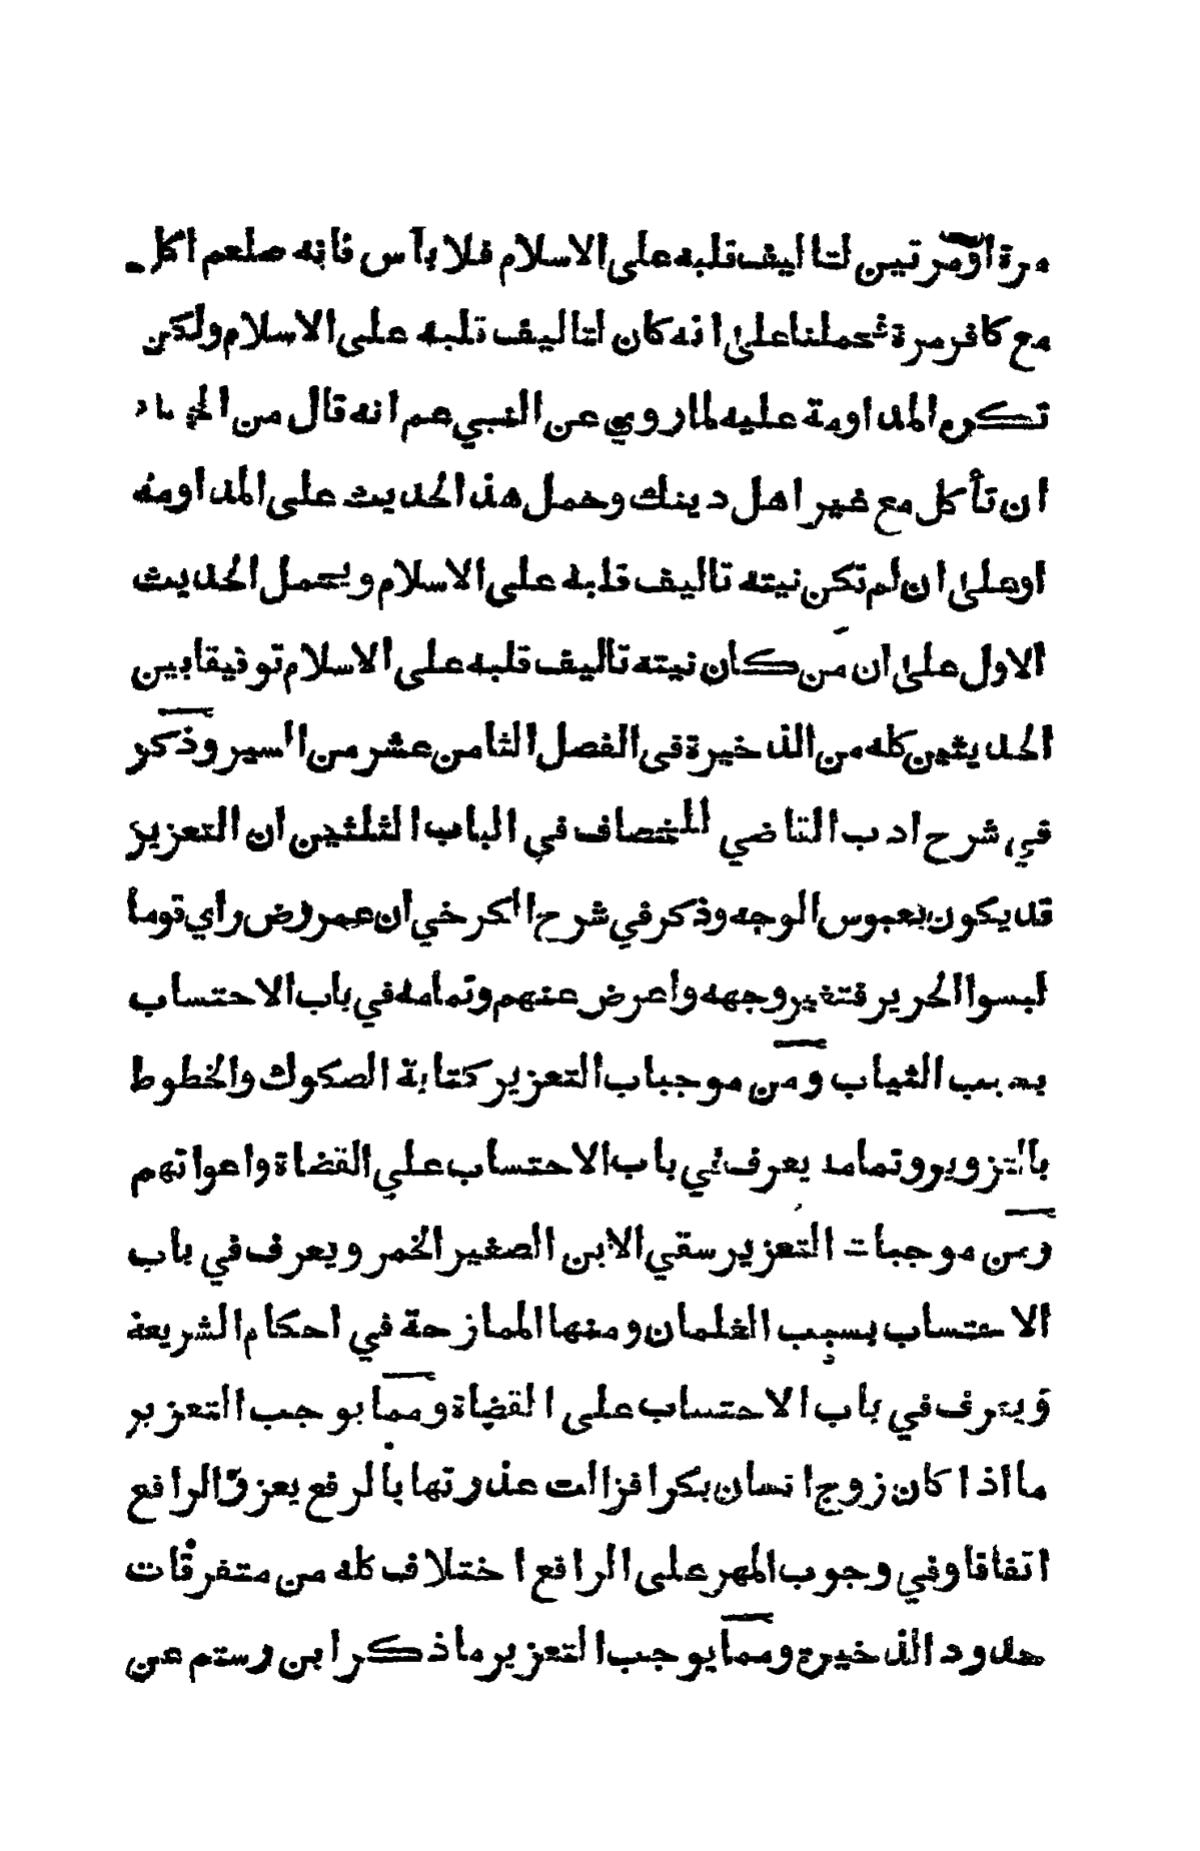 مرة اومرتين لتاليف قلبه على الاسلام فلا بأس فانه صلعم اكل
مع كافر مرة فحملنا على انه كان لتاليف قلبه على الاسلام ولكن
تكره المداومة عليه لما روي عن النبي عم انه قال من الجفاء
ان تأكل مع غير اهل دينك وحمل هذ الحديث على المداومة
اوعلى ان لم تكن نيته تاليف قلبه على الاسلام ويحمل الحديث
الاول على ان من كان نيته تاليف قلبه على الاسلام توفيقا بين
الحديثين كله من الذخيرة فى الفصل الثامن عشر من السير وذكر
في شرح ادب القاضي للخصاف في الباب الثلثين ان التعزيز
قد يكون بعبوس الوجه وذكر في شرح الكرخي ان عمر رض رأي قوما
لبسوا الحرير فتغير وجهه واعرض عنهم وتمامه في باب الاحتساب
بسبب الثياب ومن موجباب التعزير كتابة الصكوك والخطوط
بالتزوير وتمامه يعرف في باب الاحتساب علي القضاة واعوانهم
ومن موجبات التعزير سقي الابن الصغير الخمر ويعرف في باب
الاحتساب بسبب الغلمان ومنها الممازحة في احكام الشريعة
ويعرف في باب الاحتساب على القضاة ومما يوجب التعزير
ما اذا كان زوج انسان بكرا فزالت عذرتها بالرفع يعزر الرافع
اتفاقا وفي وجوب المهر على الرافع اختلاف كله من متفرقات
حدود الذخيرة ومما يوجب التعزير ما ذكر ابن رستم عن